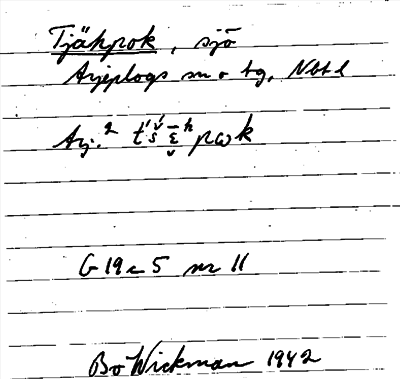 Tjähpok, sjö
Arjeplogs sn o tg, Nbt l
Arj.² t'š́ɛ̬̄ʰpωk
G 19 c 5 nr 11
Bo Wickman 1942